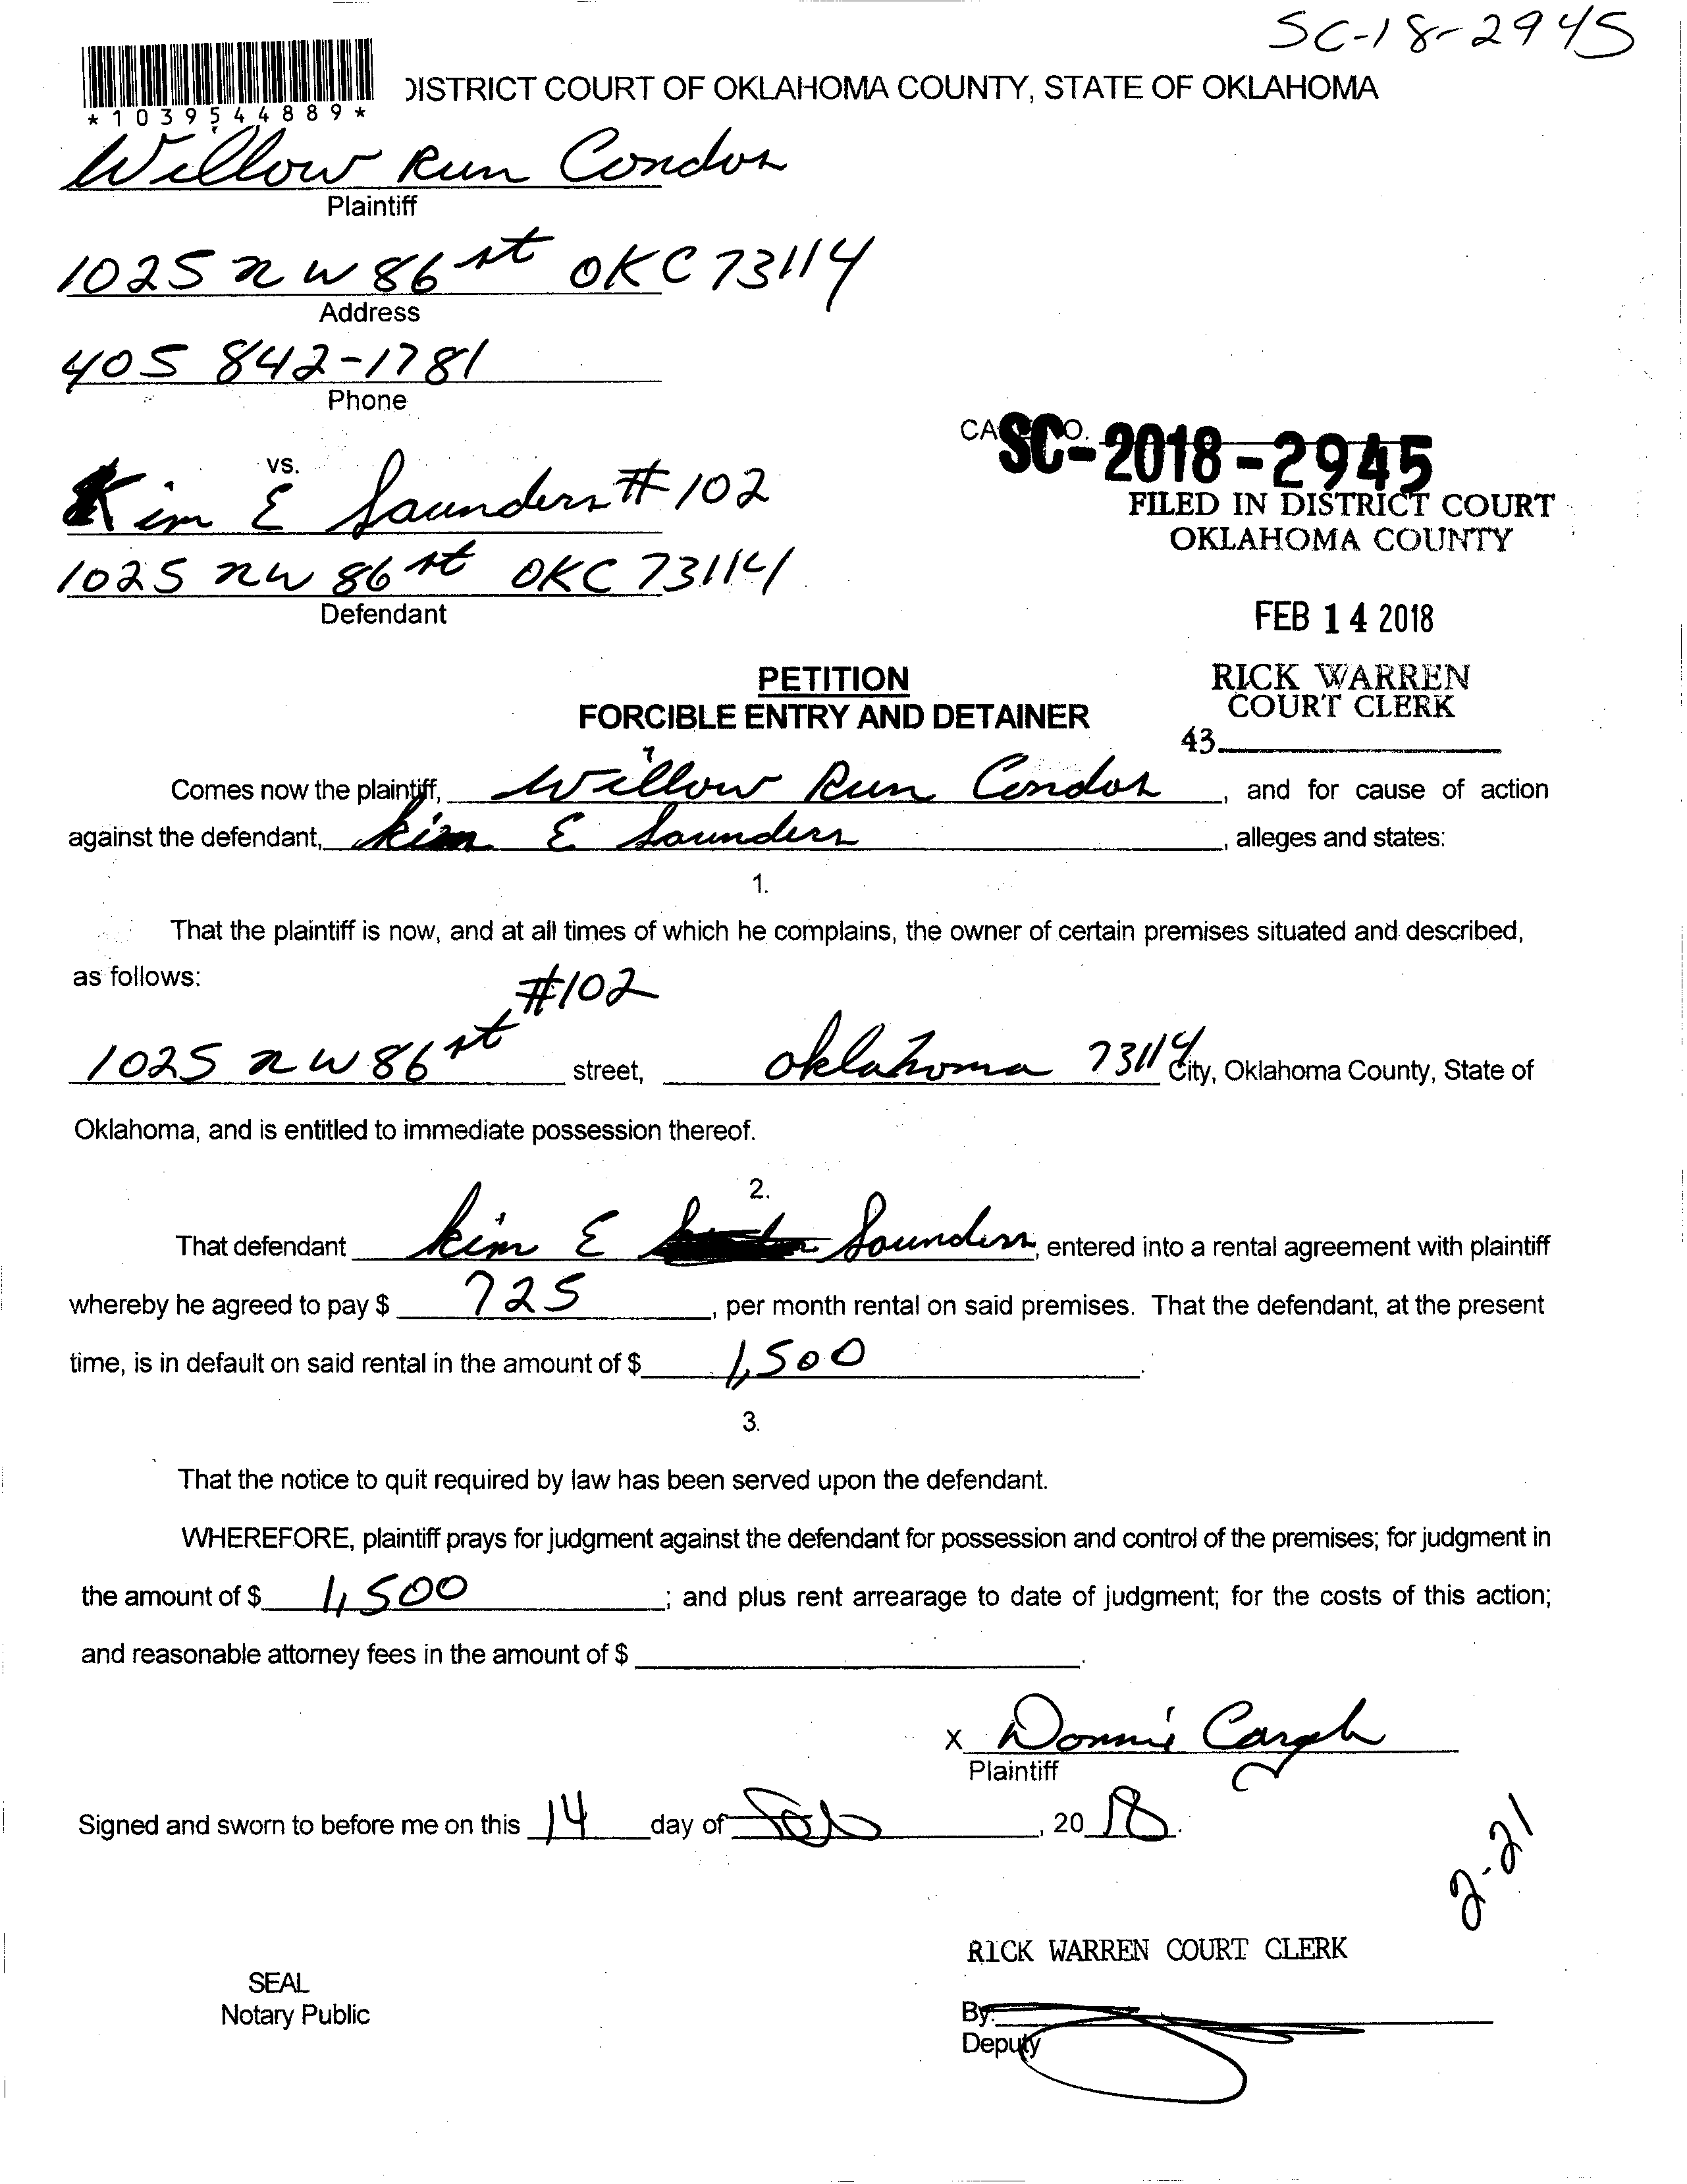 SC-18-2945
*1039544889*
DISTRICT COURT OF OKLAHOMA COUNTY, STATE OF OKLAHOMA
Willow Run Condos
Plaintiff
1025 NW 86 st OKC 73114
Address
405 842-1781
Phone
CA O.
SC-2018-2945
vs.
Kim E Saunders #102
FILED IN DISTRICT COURT
OKLAHOMA COUNTY
1025 NW 86 st OKC 73114
Defendant
FEB 14 2018
PETITION
FORCIBLE ENTRY AND DETAINER
RICK WARREN
COURT CLERK
43
Comes now the plaintiff, Willow Run Condos, and for cause of action
against the defendant, Kim E Saunders, alleges and states:
1.
That the plaintiff is now, and at all times of which he complains, the owner of certain premises situated and described,
as follows:
#102
1025 NW 86 st street, Oklahoma 73114 City, Oklahoma County, State of
Oklahoma, and is entitled to immediate possession thereof.
2.
That defendant Kim E Saunders, entered into a rental agreement with plaintiff
whereby he agreed to pay $ 725, per month rental on said premises. That the defendant, at the present
time, is in default on said rental in the amount of $ 1,500.
3.
That the notice to quit required by law has been served upon the defendant.
WHEREFORE, plaintiff prays for judgment against the defendant for possession and control of the premises; for judgment in
the amount of $ 1,500; and plus rent arrearage to date of judgment; for the costs of this action;
and reasonable attorney fees in the amount of $ .
X Donnie
Plaintiff
Signed and sworn to before me on this 14 day of Feb, 2018.
2-21
RICK WARREN COURT CLERK
SEAL
Notary Public
By:
Deputy